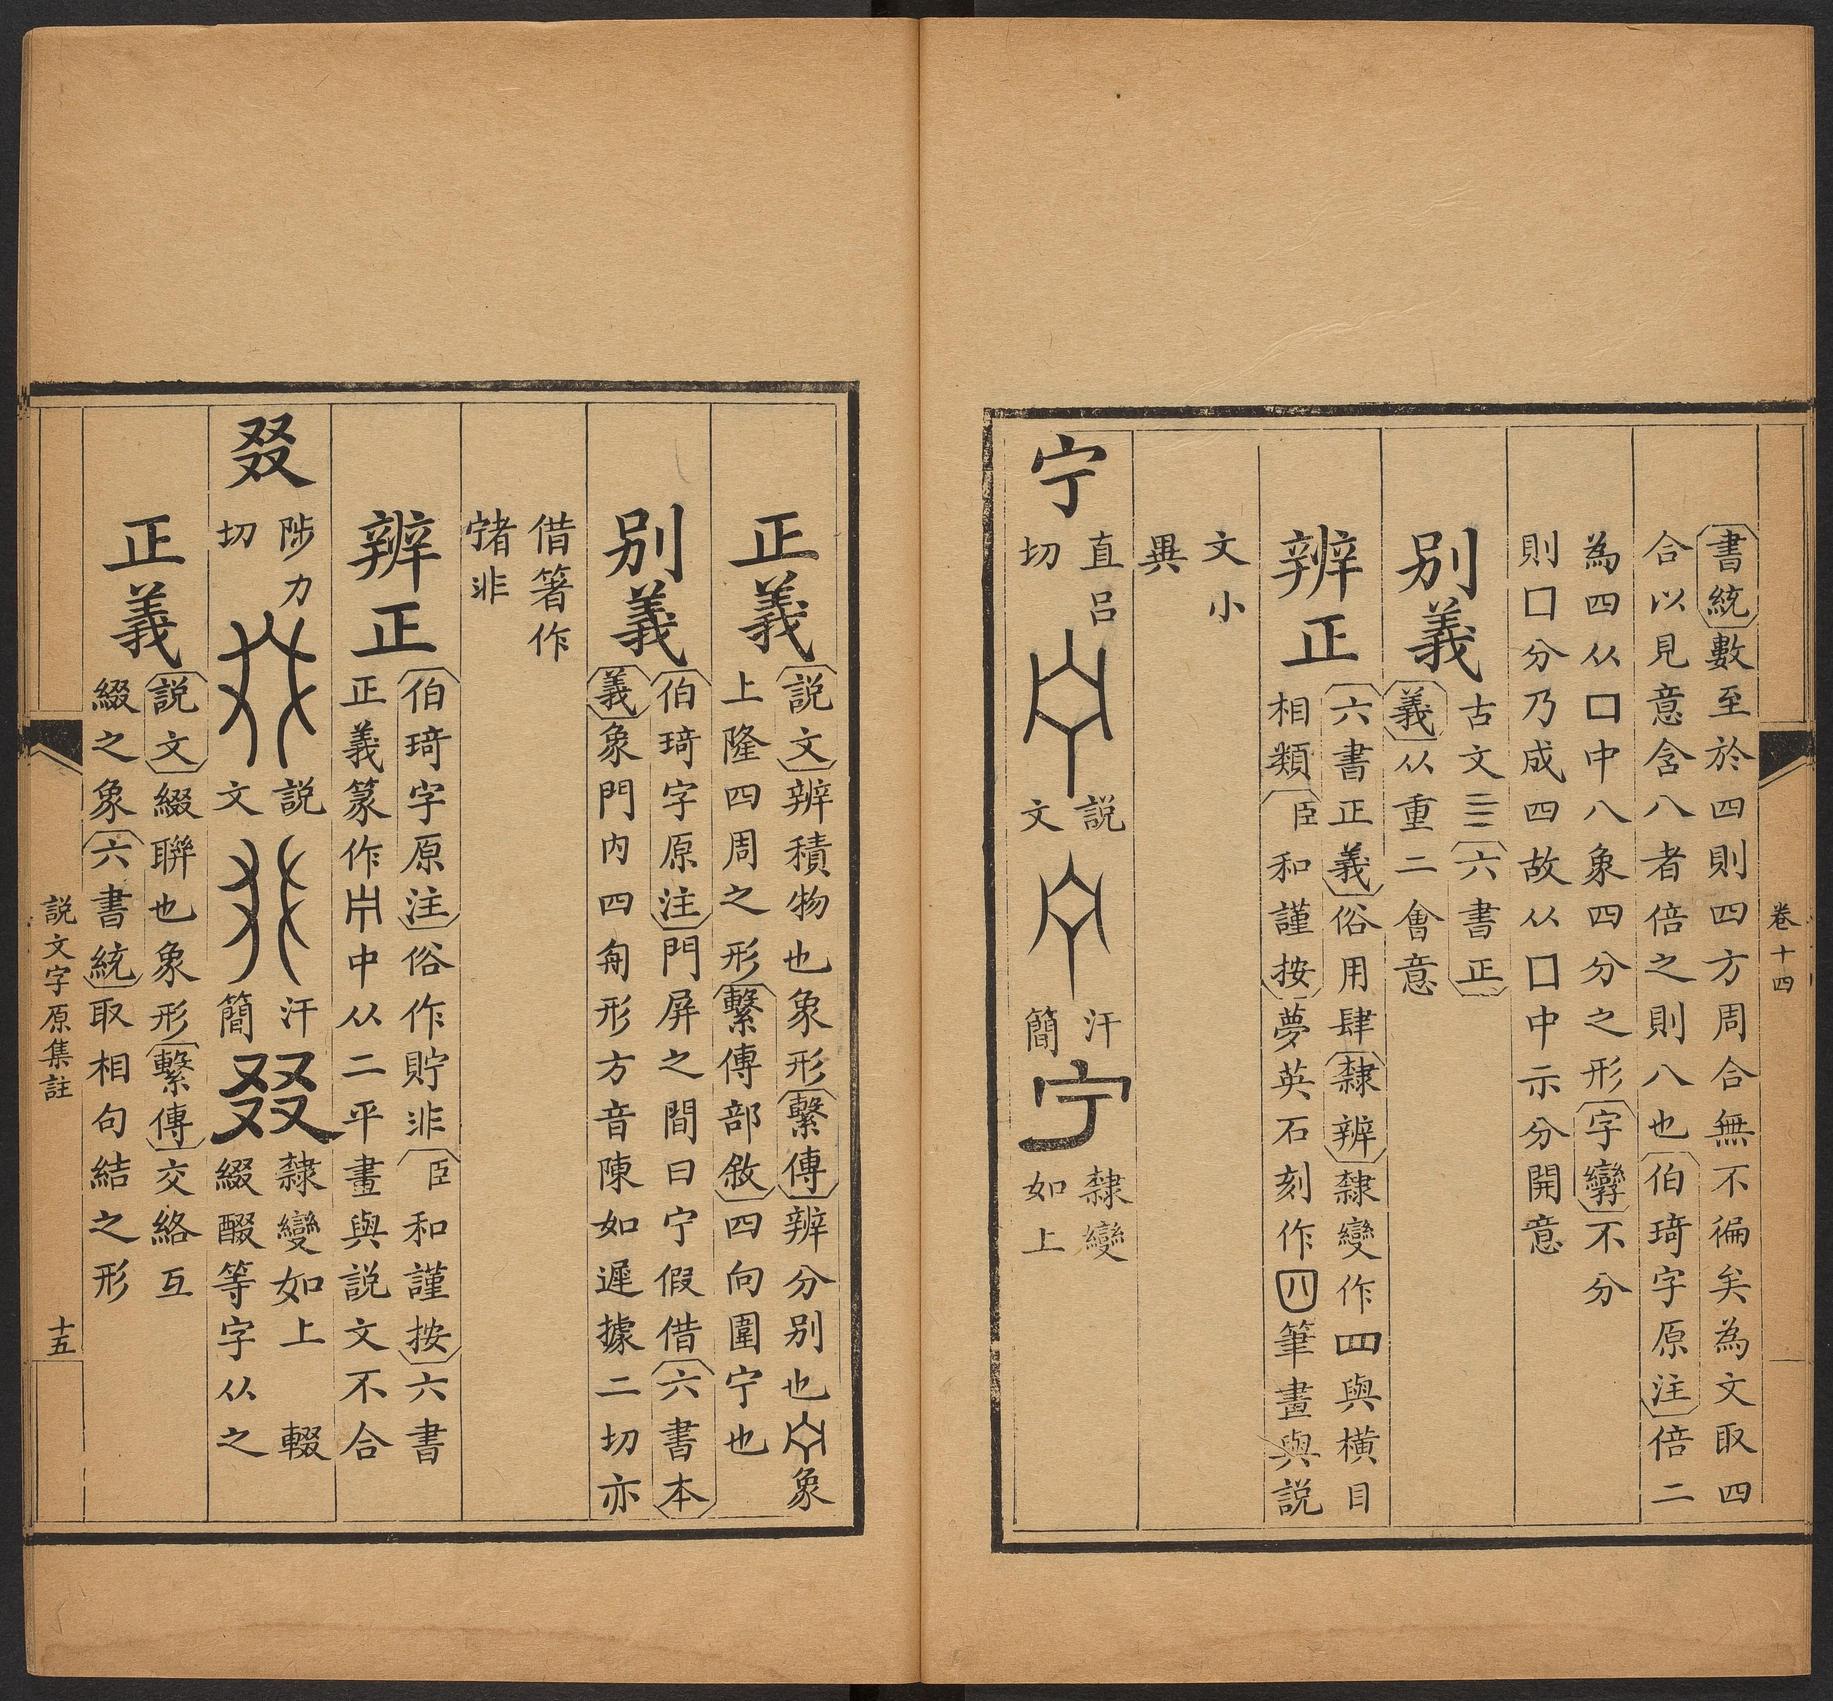 卷十四
書統數至於四則四方周合無不徧矣為文取四
合以見意含八者倍之則八也伯琦字原注倍二
為四从口中八象四分之形字孿不分
則囗分乃成四故从囗中示分開意
別義
古文亖六書正
義从重二會意
辨正
六書正義俗用肆隸辨隸變作四與橫目
相類臣和謹按夢英石刻作四筆畫與說
文小
異
宁
直呂
切
說
文
汗
簡
宁
隸變
如上
正義
說文辨積物也象形繫傳辨分別也宁象
上隆四周之形繫傳部敘四向圍宁也
別義
伯琦字原注門屏之間曰宁假借六書本
義象門內四角形方音陳如遲據二切亦
借箸作
㝉者非
辨正
伯琦字原注俗作貯非臣和謹按六書
正義篆作中从二平畫與說文不合
叕
陟力
切
說
文
汗
簡
叕
隸變如上 輟
綴醊等字从之
正義
說文綴聯也象形繫傳交絡互
綴之象六書統取相句結之形
說文字原集註
十五